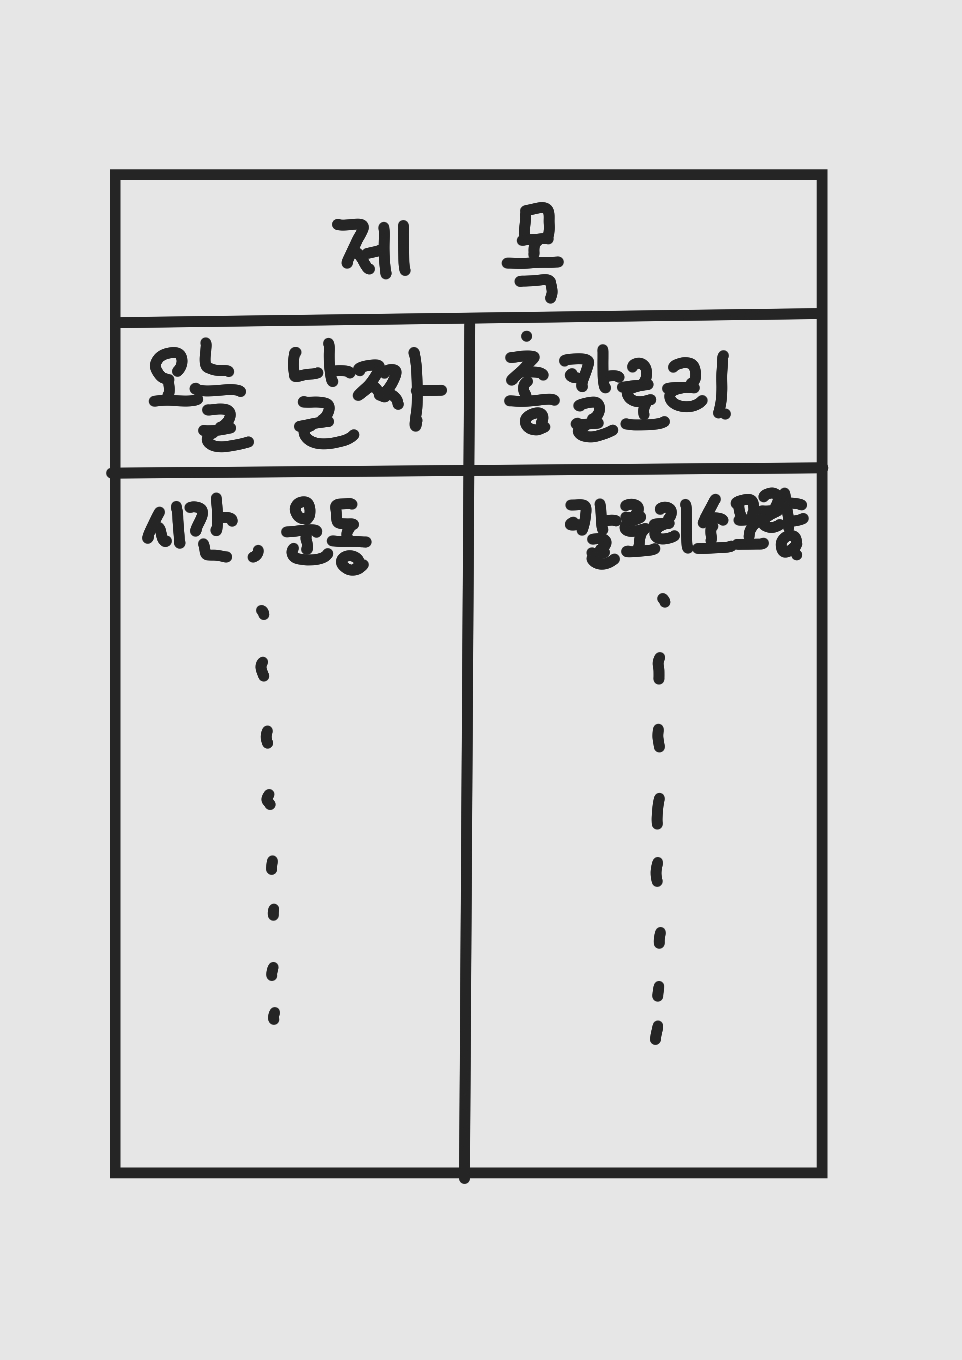 제 목
오늘 날짜 총칼로리
시간, 운동 칼로리소모량